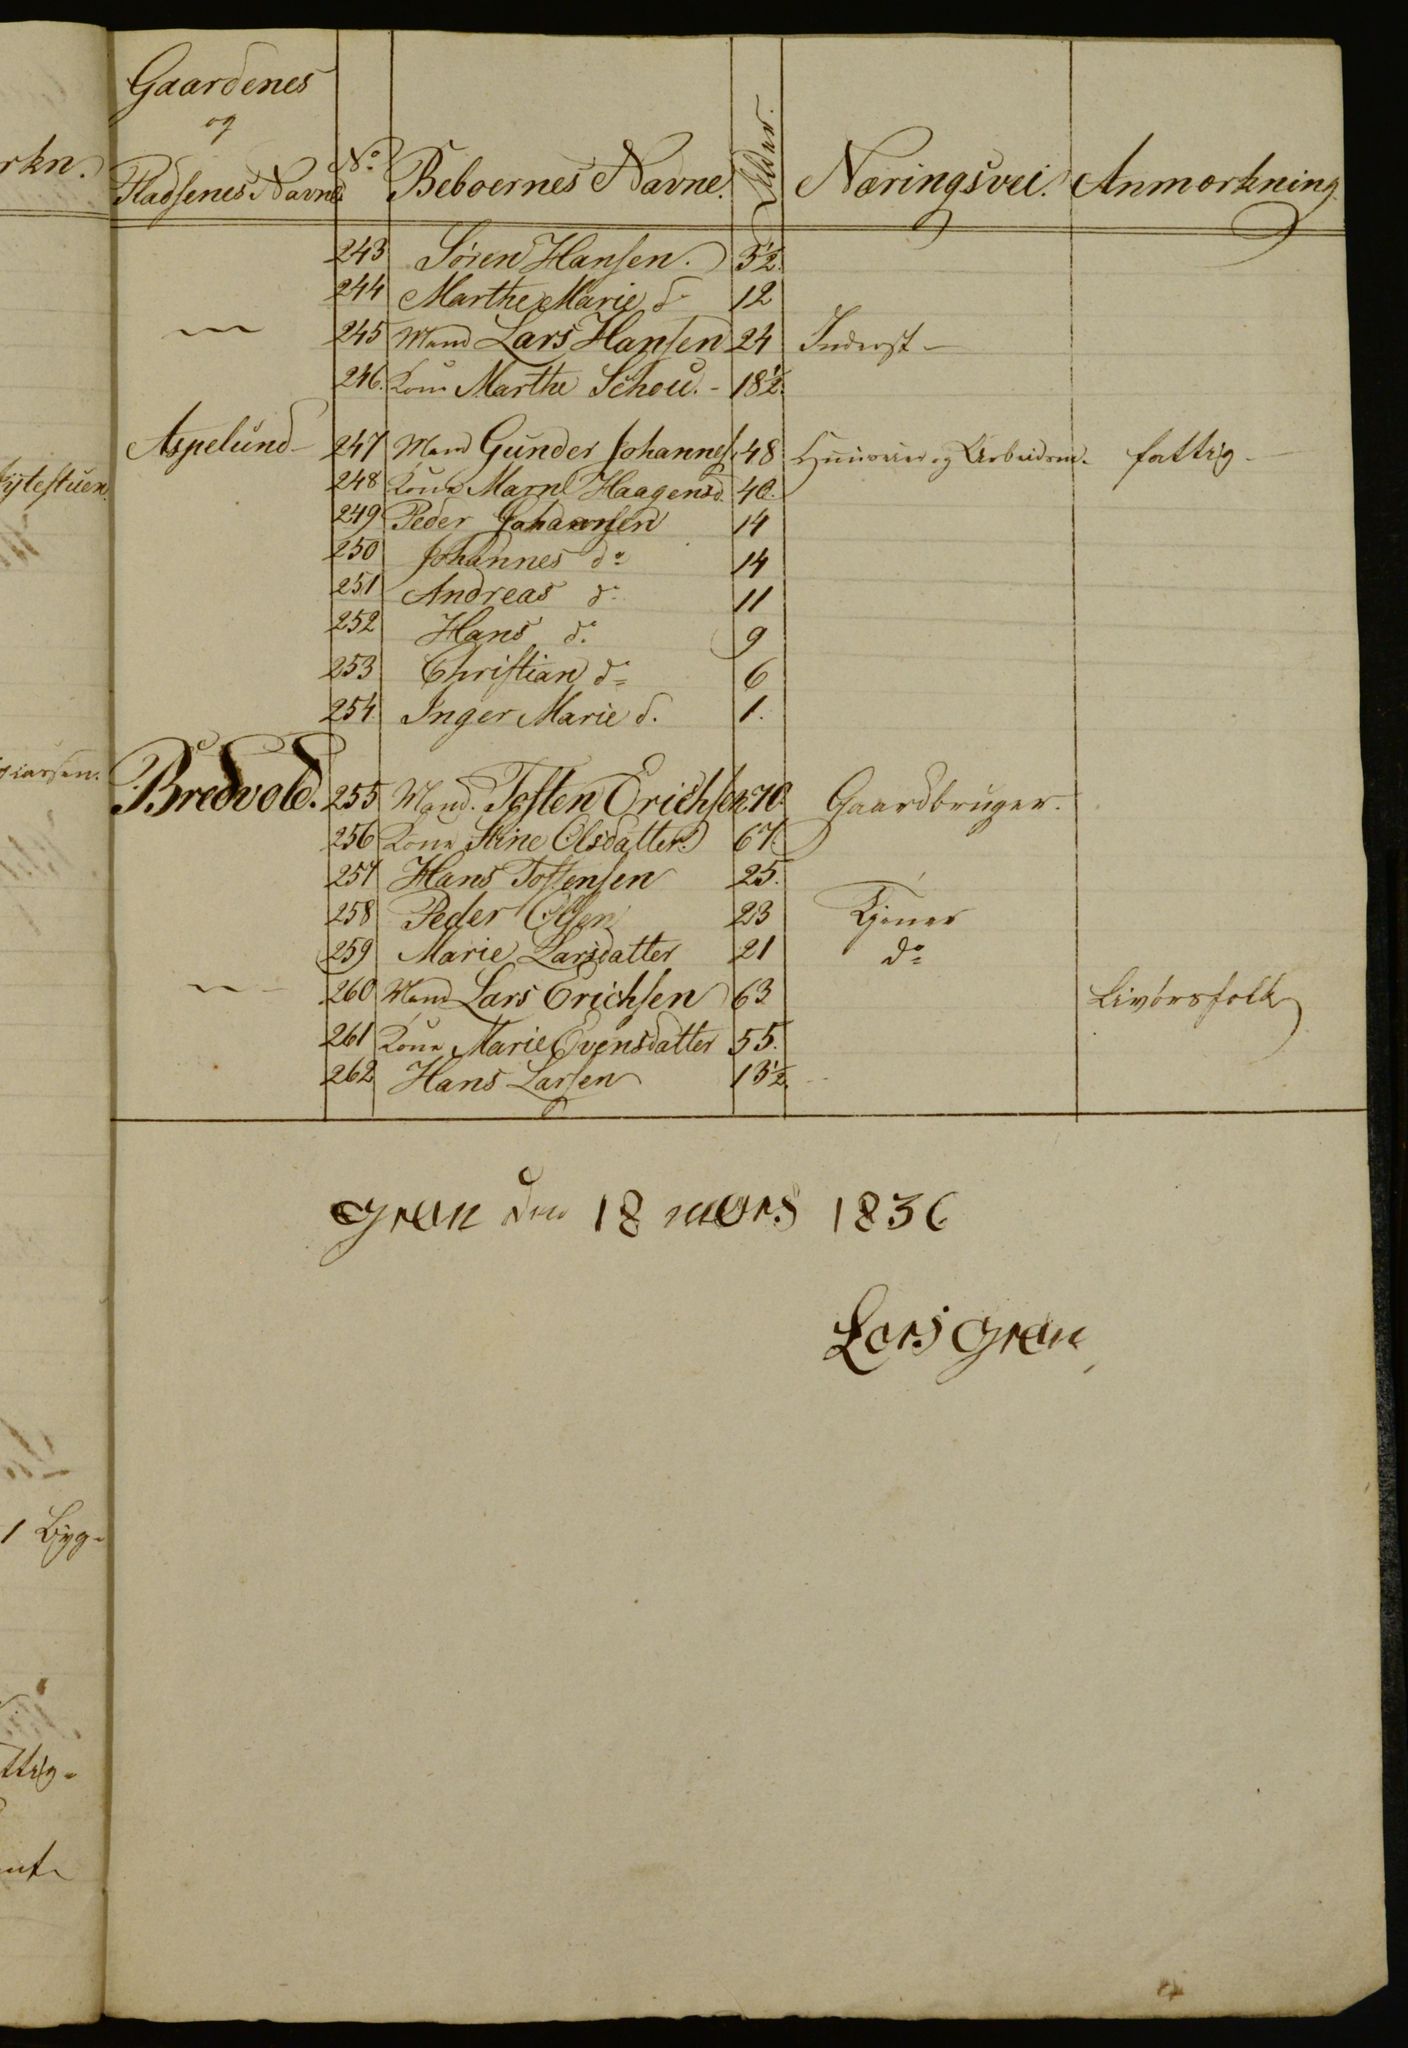 Gaardenes
og
Pladsenes Navne No Beboernes Navne. Alder. Næringsvei. Anmærkning
243 Sören Hansen. 3½.
244 Marthe Marie do 12
— 245 Mand Lars Hansen 24 Inderst —
246. Kone Marthe Schou. - 18½.
Aspelund - 247 Mand Gunder Johannes. 48 og Arbeidsm. fattig -
248 Kone Marn Haagensd. 40.
249 Peder Johansen 14
250 Johannes do 14
251 Andreas do 11
252 Hans do. 9
253 Christian do 6
254 Inger Marie d. 1.
Bredvold. 255 Mand. Tosten Erichsen. 70. Gaardbruger.
256 Kone Stine Olsdatter. 67.
257 Hans Tostensen 25.
258 Peder Olsen. 23 Tjener
259 Marie Larsdatter 21 do
— 260 Mand Lars Erichsen 63 Livörsfolk
261 Kone Marie Evensdatter 55.
262 Hans Larsen 13½.
Gran den 18 mars 1836
Lars Gran
rkn.
Kytestuen.
Larsen.
1 Byg-
ttig-